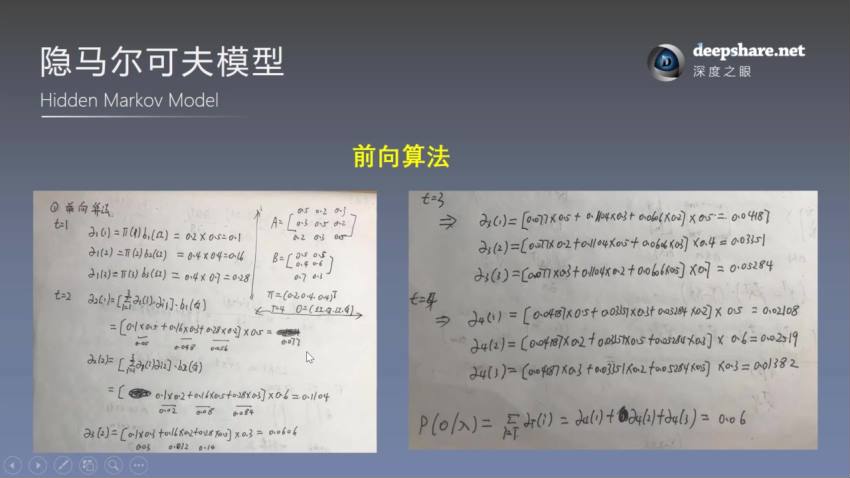 隐马尔可夫模型
Hidden Markov Model
deepshare.net
深度之眼
前向算法
① 前向算法
t=1
∂₁(1)=π(1)b₁(红) = 0.2×0.5=0.1
∂₁(2)=π(2)b₂(红) = 0.4×0.4=0.16
∂₁(3)=π(3)b₃(红) = 0.4×0.7=0.28
A=[0.5 0.2 0.3
0.3 0.5 0.2
0.2 0.3 0.5]
B=[0.5 0.5
0.4 0.6
0.7 0.3]
π=(0.2,0.4,0.4)ᵀ
T=4
t=2
=[0.1×0.5+0.16×0.3+0.28×0.2]×0.5=
0.05 0.048 0.056 0.077
=[0.1×0.2+0.16×0.5+0.28×0.3]×0.6=0.1104
0.02 0.08 0.084
∂₃(2)=[0.1×0.3+0.16×0.2+0.28×0.5]×0.3=0.0606
0.03 0.032 0.14
t=3
⇒ ∂₃(1)=[0.077×0.5+0.1104×0.3+0.0606×0.2]×0.5=0.04187
∂₃(2)=[0.077×0.2+0.1104×0.5+0.0606×0.3]×0.4=0.03551
∂₃(3)=[0.077×0.3+0.1104×0.2+0.0606×0.5]×0.7=0.05284
t=4
⇒ ∂₄(1)=[0.04187×0.5+0.03551×0.3+0.05284×0.2]×0.5=0.02108
∂₄(2)=[0.04187×0.2+0.03551×0.5+0.05284×0.3]×0.6=0.02519
∂₄(3)=[0.04187×0.3+0.03551×0.2+0.05284×0.5]×0.3=0.01382
P(O/λ)= = ∂₄(1)+∂₄(2)+∂₄(3)=0.06